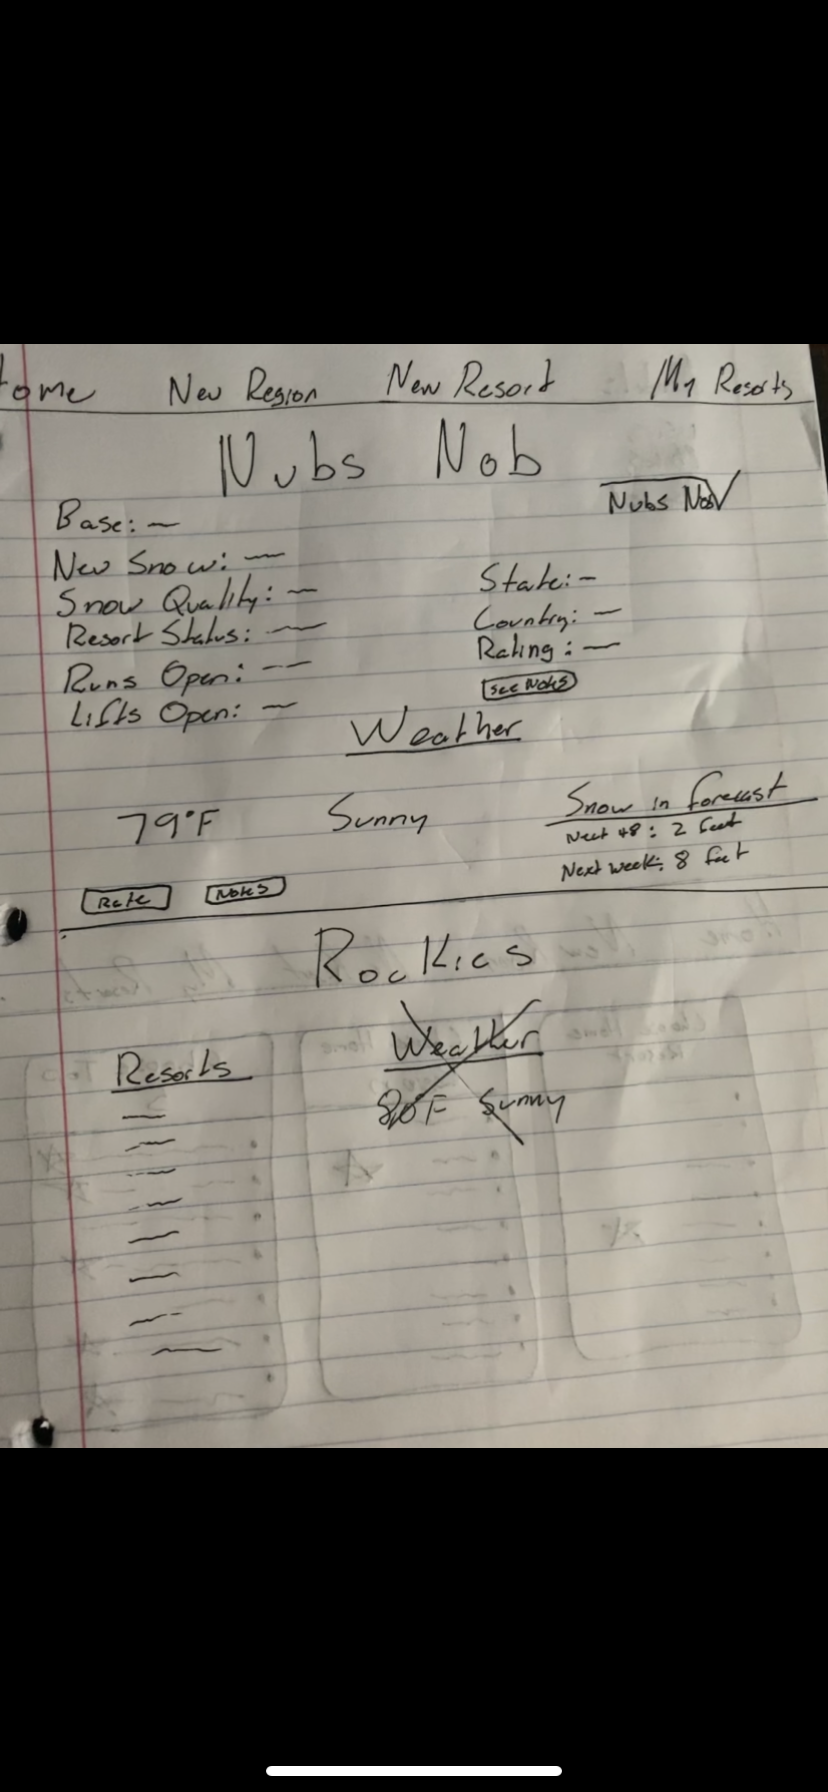 Home New Region New Resort My Resorts
Nubs Nob
Nubs Nob
Base: —
New Snow: —
Snow Quality: —
Resort Status: —
Runs Open: --
Lifts Open: —
State: -
Country: —
Rating: —
See Notes
Weather
79°F Sunny
Snow in forecast
Next 48: 2 feet
Next week: 8 feet
Rate Notes
Rockies
Resorts
Weather
80F Sunny